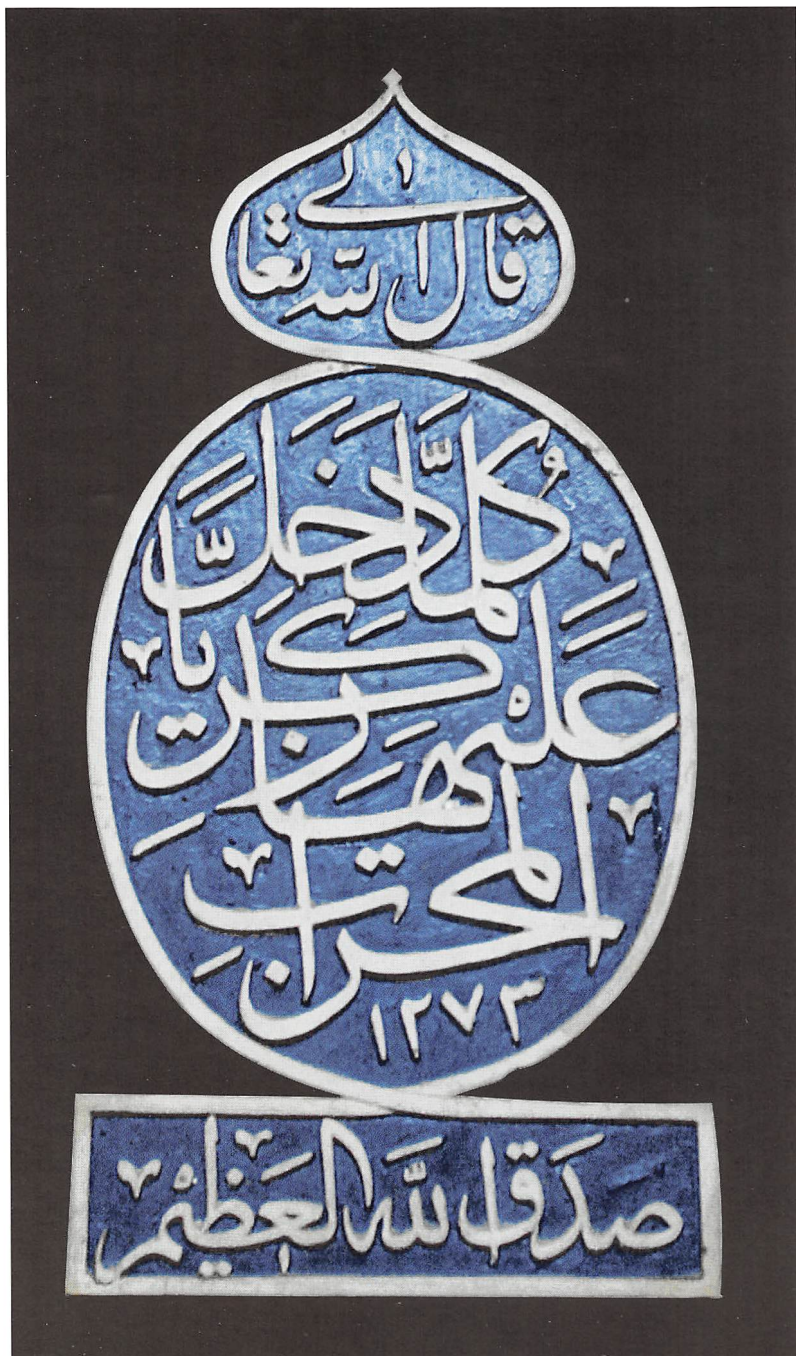 قال الله تعالى
كُلَّمَا دَخَلَ
عَلَيْهَا زَكَرِيَّا
المحرابَ
١٢٧٣
صدق الله العظيم